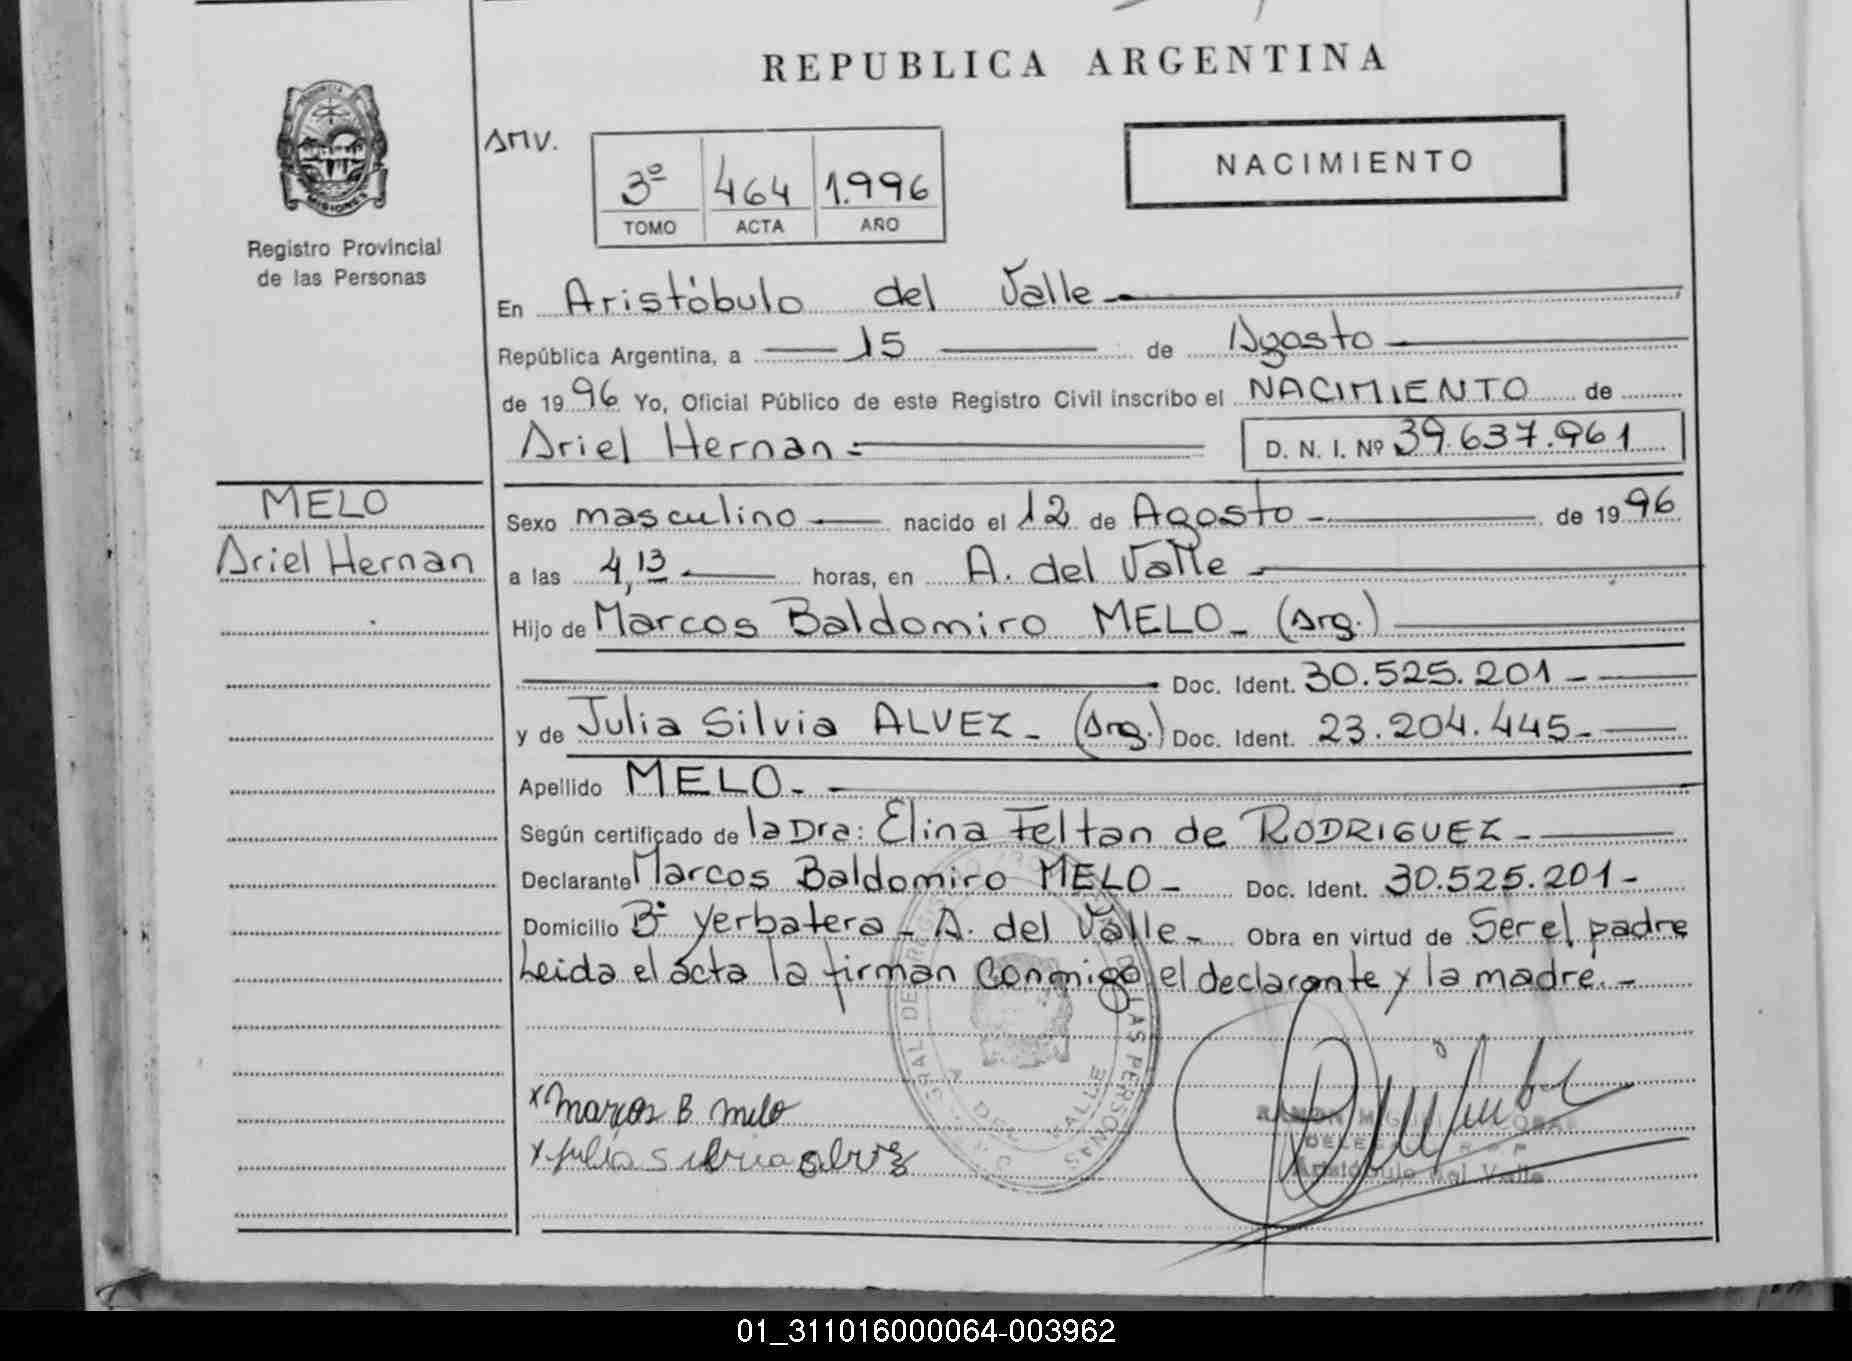 REPUBLICA ARGENTINA
PROVINCIA
MISIONES
Registro Provincial
de las Personas
AMV.
3º 464 1.996
TOMO ACTA AÑO
NACIMIENTO
En Aristóbulo del Valle
República Argentina, a 15 de Agosto
de 1996 Yo, Oficial Público de este Registro Civil inscribo el NACIMIENTO de
Ariel Hernan
D. N. I. Nº 39.637.961
MELO
Ariel Hernan
Sexo masculino nacido el 12 de Agosto de 1996
a las 4,13 horas, en A. del Valle
Hijo de Marcos Baldomiro MELO - (Arg.)
Doc. Ident. 30.525.201 -
y de Julia Silvia ALVEZ - (Arg.) Doc. Ident. 23.204.445 -
Apellido MELO -
Según certificado de la Dra: Elina Feltan de RODRIGUEZ -
Declarante Marcos Baldomiro MELO - Doc. Ident. 30.525.201 -
Domicilio Bº Yerbatera - A. del Valle - Obra en virtud de Ser el padre
Leida el acta la firman conmigo el declarante y la madre. -
x Marcos B melo
x Julia Silvia alvez
DE LAS PERSONAS
DEL VALLE
RAMON
Aristóbulo del Valle
01_311016000064-003962